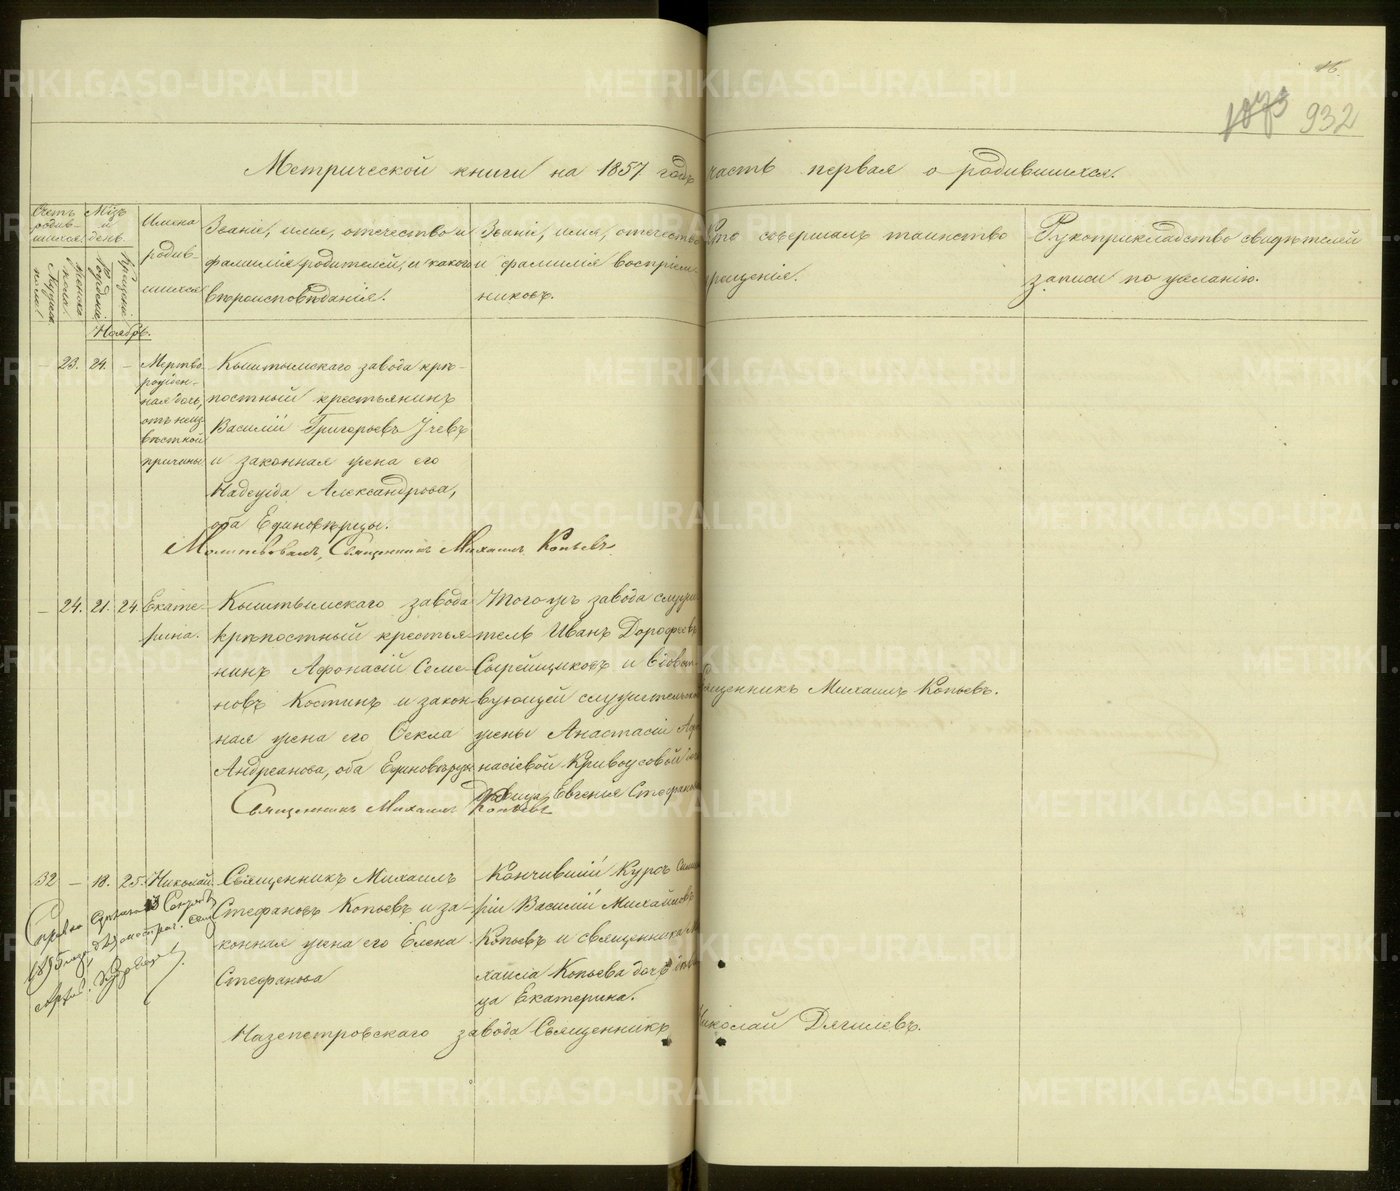 16.
1073 932
Метрической книги на 1857 годъ часть первая о родившихся.
Счетъ родившихся.
Мужеска пола.
Женска пола.
Мѣз. и день.
Рожденія.
Крещенія.
Имена родившихся
Званіе, имя, отечество и
фамилія родителей, и какого
вѣроисповѣданія.
Званіе, имя, отечество
и фамилія воспріем-
никовъ.
Кто совершалъ таинство
крещенія.
Рукоприкладство свидѣтелей
записи по желанію.
Ноябрь.
– 23. 24. –
Мертво
рожден-
ная дочь,
отъ неиз
вѣстной
причины
Кыштымскаго завода крѣ-
постный крестьянинъ
Василій Григорьевъ Угевъ
и законная жена его
Надежда Александрова,
оба Единовѣрцы.
Молитвовалъ, Священникъ Михаилъ Копьевъ
– 24. 21. 24.
Екате-
рина.
Кыштымскаго завода
крѣпостный крестья-
нинъ Афонасій Семе-
новъ Костинъ и закон-
ная жена его Секла
Андреанова, оба Единовѣрцы
Тогожъ завода служи-
тель Иванъ Дорофеевъ
Сырейщиковъ и вдовст-
вующей служительской
жены Анастасіи Афо
насіевой Кривоусовой дочь
дѣвица Евгенія Стефанова
Священникъ Михаилъ Копьевъ.
Священникъ Михаилъ Копьевъ
32 – 18. 25.
Николай
Священникъ Михаилъ
Стефановъ Копьевъ и за-
конная жена его Елена
Стефанова
Кончившій Курсъ Семина
ріи Василій Михайловъ
Копьевъ и священника Ми
хаила Копьева дочь дѣви
ца Екатерина.
Справка
Назепетровскаго завода Священникъ Николай Дягилевъ.
METRIKI.GASO-URAL.RU